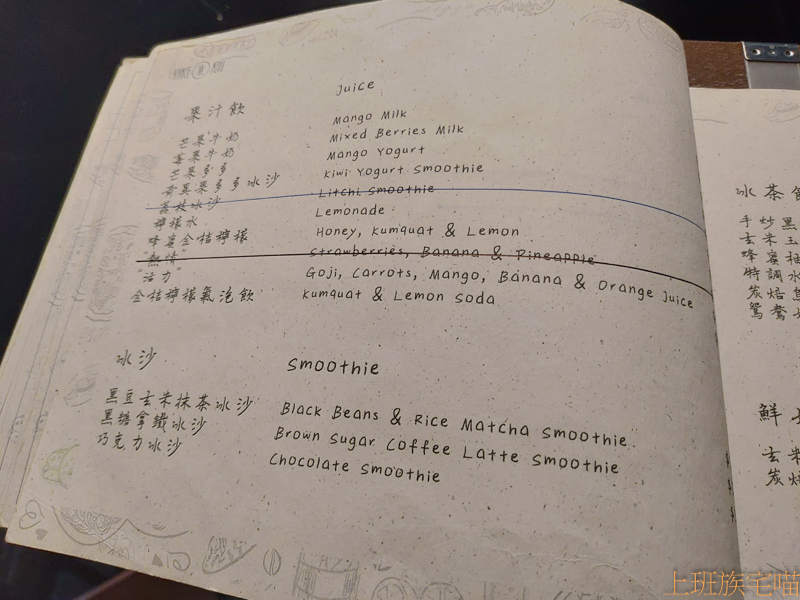 果汁飲 Juice
芒果牛奶 Mango Milk
莓果牛奶 Mixed Berries Milk
芒果多多 Mango Yogurt
奇異果多多冰沙 Kiwi Yogurt Smoothie
荔枝冰沙 Litchi Smoothie
檸檬水 Lemonade
蜂蜜金桔檸檬 Honey, Kumquat & Lemon
"熱情" Strawberries, Banana & Pineapple
"活力" Goji, Carrots, Mango, Banana & Orange Juice
金桔檸檬氣泡飲 Kumquat & Lemon Soda
冰沙 Smoothie
黑豆玄米抹茶冰沙 Black Beans & Rice Matcha Smoothie
黑糖拿鐵冰沙 Brown Sugar Coffee Latte Smoothie
巧克力冰沙 Chocolate Smoothie
冰茶
手炒黑
玄米玉
蜂蜜柚
特調水
炭焙
鴛鴦
鮮
玄米
炭焙
上班族宅喵